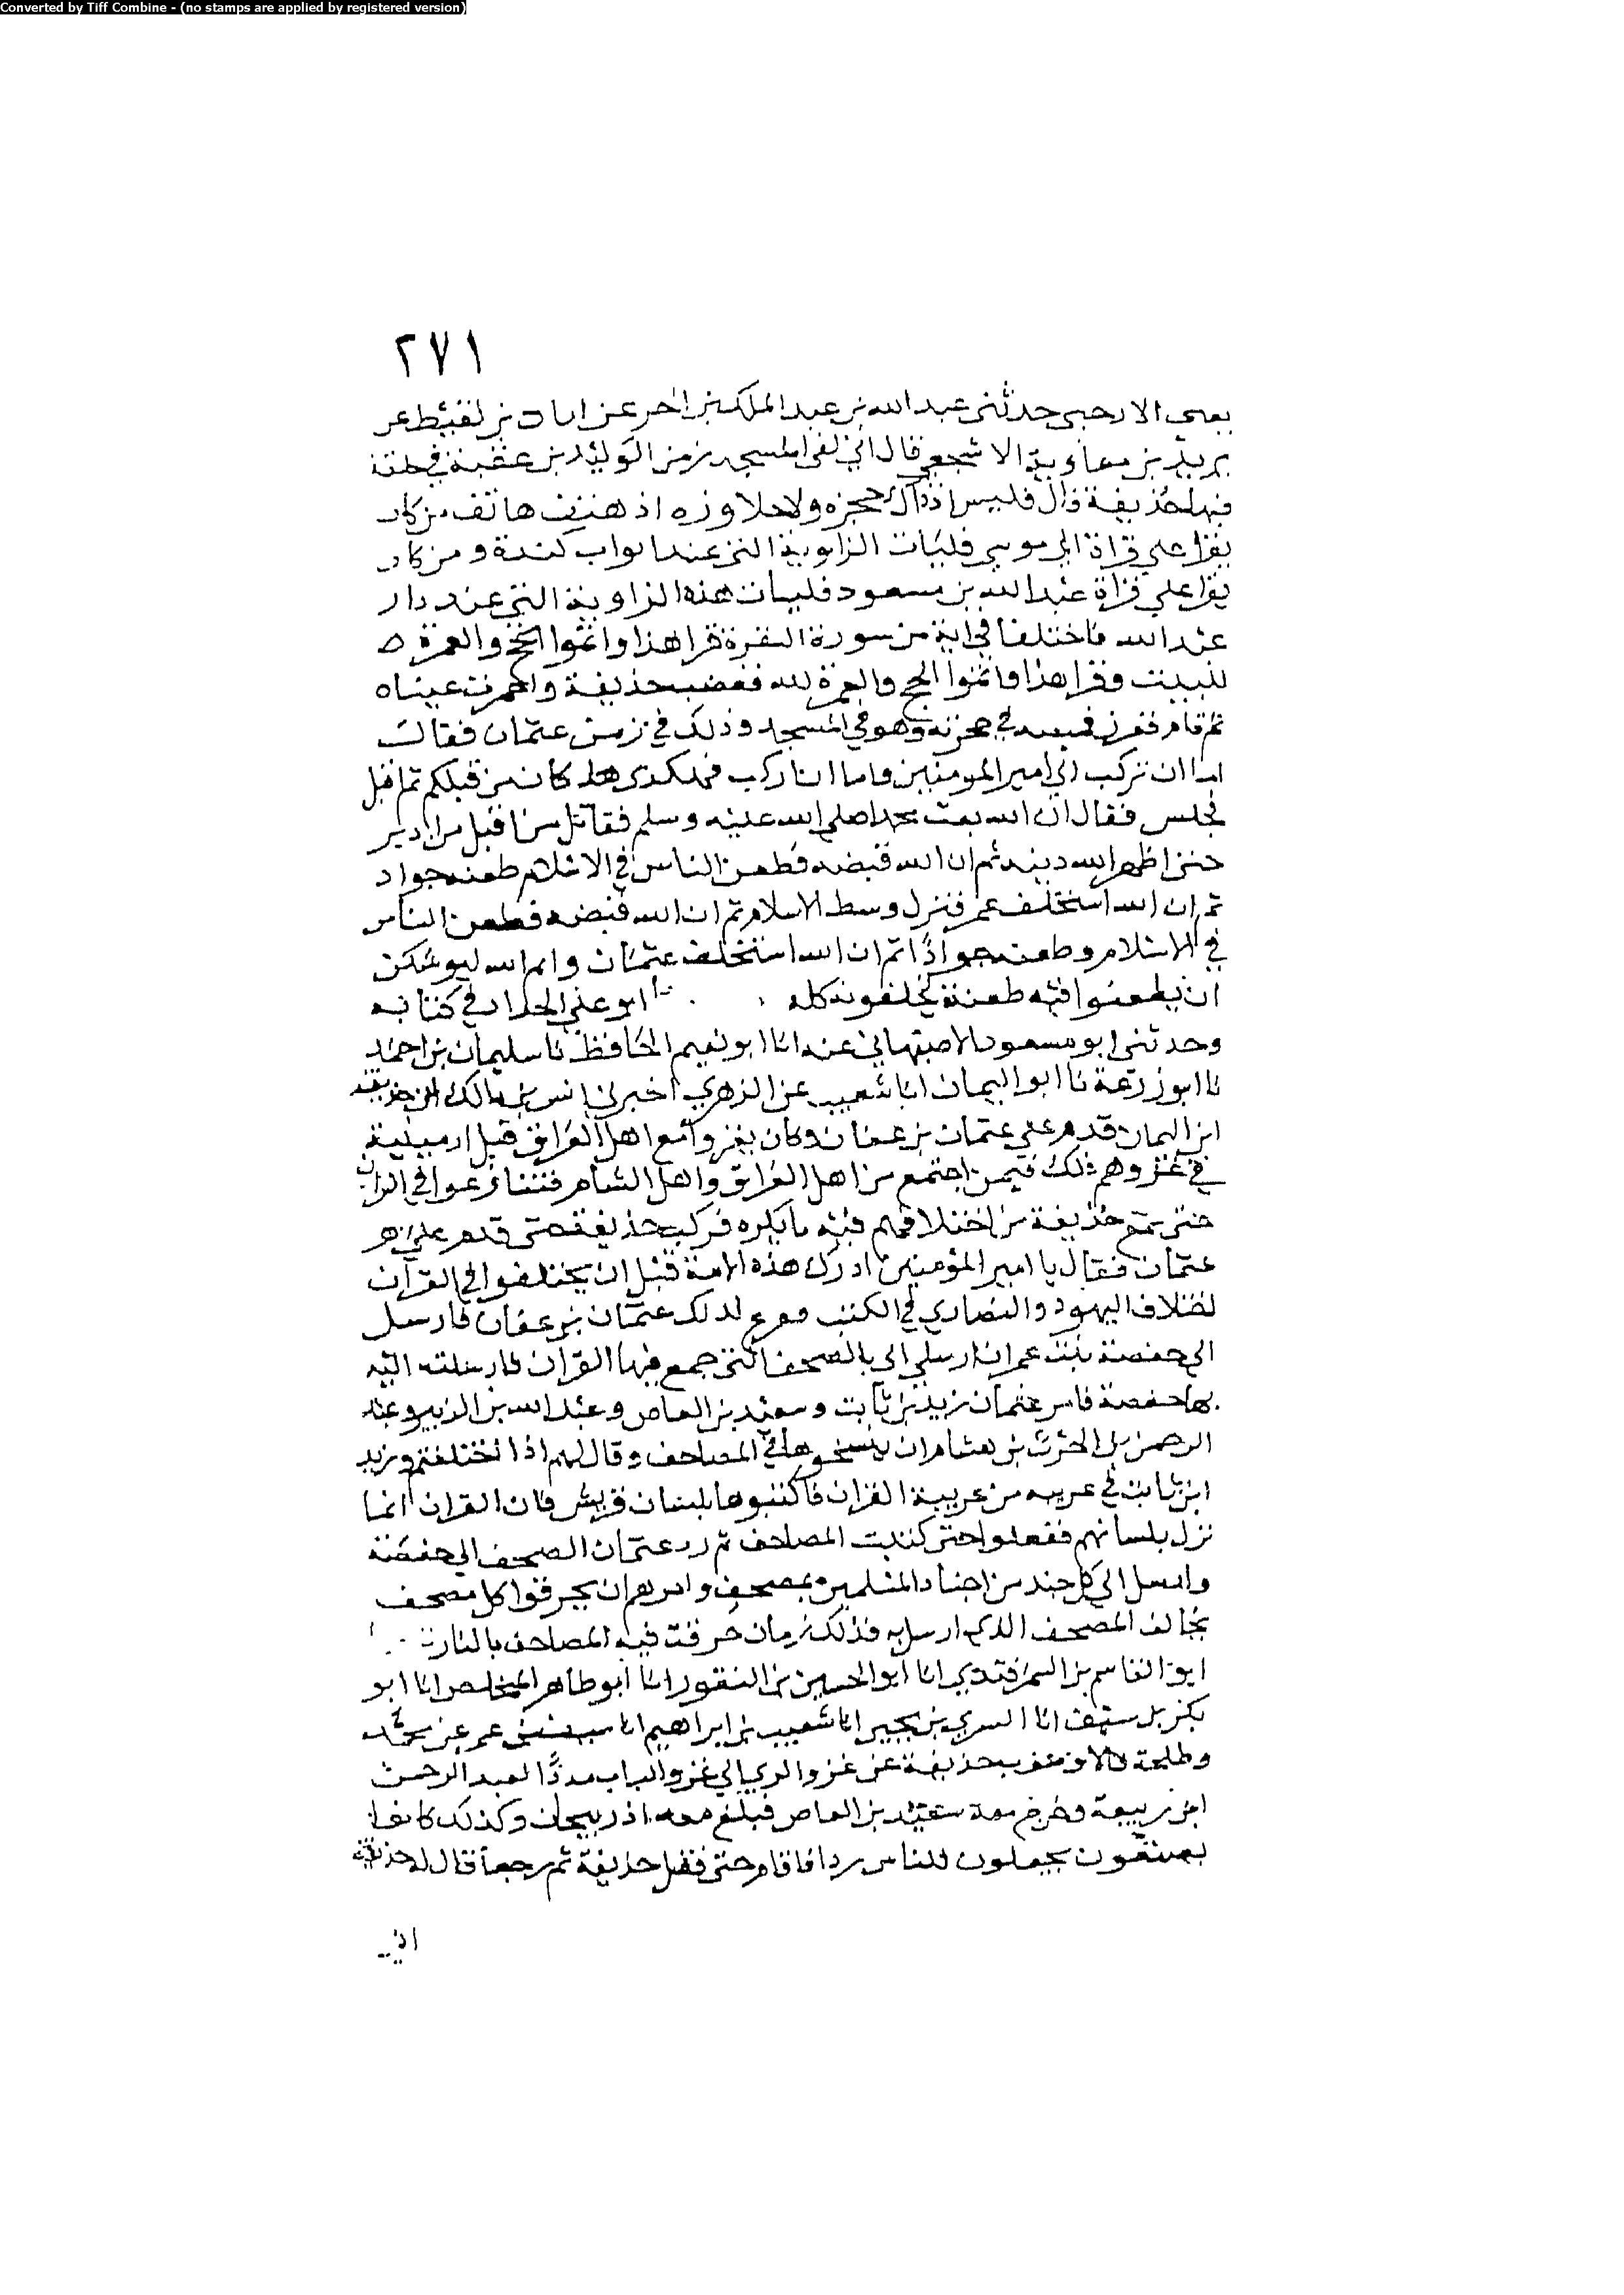 Converted by Tiff Combine - (no stamps are applied by registered version)
٢٧١
يعنى الارحبى حدثنى عبد الله بن عبد الملك بن ابحر عن اياد بن لقيط عن
يزيد بن معاوية الاشجعي قال اني لفى المسجد زمن الوليد بن عقبة في حلقة
فيها حذيفة قال فليس اذ ذاك حجزه ولا جلاوزه اذ هتف هاتف من كان
يقرا على قراة ابي موسى فليات الزاوية التى عند ابواب كندة ومن كان
يقرا علي قراة عبد الله بن مسعود فليات هذه الزاوية التى عند دار
عبد الله فاختلفا في اية من سورة البقرة قرا هذا واتموا الحج والعمرة
للبيت وقرا هذا واتموا الحج والعمرة لله فغضب حذيفة واحمرت عيناه
ثم قام فغرز قميصه في حجزته وهو في المسجد وذلك في زمن عثمان فقال
اما ان تركب الى امير المومنين واما ان اركب فهكذى كان من قبلكم ثم اقبل
فجلس فقال ان الله بعث محمدا صلى الله عليه وسلم فقاتل من اقبل من ادبر
حتى اظهر الله دينه ثم ان الله قبضه فطعن الناس في الاسلام طعنه جواد
ثم ان الله استخلف عمر فنزل وسط الاسلام ثم ان الله قبضه فطعن الناس
في الاسلام وطعنه جواد ثم ان الله استخلف عثمان وايم الله ليوشكن
ان يطعنوا فيه طعنة تخلفونه كله ابو علي الحداد في كتابه
وحدثنى ابو مسعود الاصبهاني عنه انا ابو نعيم الحافظ نا سليمان بن احمد
نا ابو زرعة نا ابو اليمان انا شعيب عن الزهري اخبرني انس بن مالك ان حذيفة
ابن اليمان قدم على عثمان بن عفان وكان يغزو مع اهل العراق قبل ارمينية
في غزوهم ذلك فيمن اجتمع من اهل العراق واهل الشام فتنازعوا في القران
حتى سمع حذيفة من اختلافهم فيه ما يكره فركب حذيفة حتى قدم على
عثمان فقال يا امير المؤمنين ادرك هذه الامة قبل ان يختلفوا في القرآن
اختلاف اليهود والنصارى في الكتب ففزع لذلك عثمان بن عفان فارسل
الى حفصة بنت عمر ان ارسلي الى بالصحف التى جمع فيها القران فارسلت اليه
بها حفصة فامر عثمان زيد بن ثابت وسعيد بن العاص وعبد الله بن الزبير وعبد
الرحمن بن الحرث بن هشام ان ينسخوها في المصاحف وقال لهم اذا اختلفتم وزيد
ابن ثابت في عربيه من عربية القران فاكتبوها بلسان قريش فان القران انما
نزل بلسانهم ففعلوا حتى كتبت المصاحف ثم رد عثمان الصحف الى حفصة
وارسل الى كل جند من اجناد المسلمين بمصحف وامرهم ان يحرقوا كل مصحف
يخالف المصحف الذى ارسل به فذلك زمان حرقت فيه المصاحف بالنار
ابو القاسم بن السمرقندي انا ابو الحسين بن النقور انا ابو طاهر المخلص انا ابو
بكر بن سيف انا السري بن يحيى انا شعيب بن ابراهيم انا سيف بن عمر عن محمد
وطلحة قالا وصرف حذيفة عن غزو الري الى غزو الباب مددا لعبد الرحمن
ابن ربيعة وخرج معه سعيد بن العاص فبلغ معه اذربيجان وكذلك كانوا
يصنعون يجعلون للناس ردا فاقام حتى قفل حذيفة ثم رجعا قال له حذيفة
اني